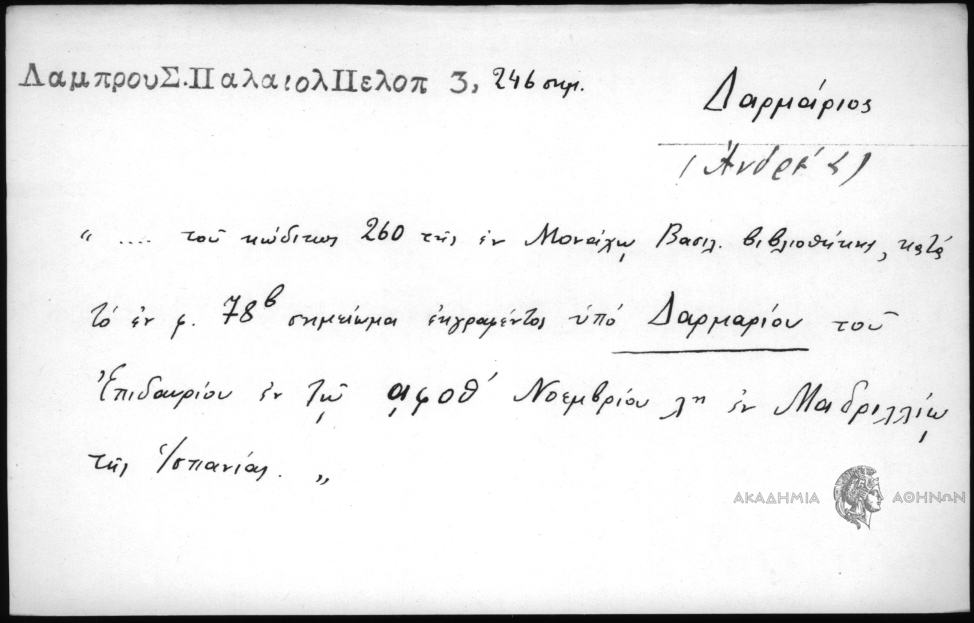 ΛαμπρουΣ.ΠαλαιολΠελοπ 3, 246 σημ.
Δαρμάριος
(Ἀνδρέας)
“ .... τοῦ κώδικος 260 τῆς ἐν Μονάχῳ Βασιλ. βιβλιοθήκης, κατὰ
τὸ ἐν φ. 78β σημείωμα ἐκγραφέντος ὑπὸ Δαρμαρίου τοῦ
Ἐπιδαυρίου ἐν τῷ ͵αφοθʹ Νοεμβρίου λῃ ἐν Μαδριλλίῳ
τῆς Ἱσπανίας. „
ΑΚΑΔΗΜΙΑ ΑΘΗΝΩΝ